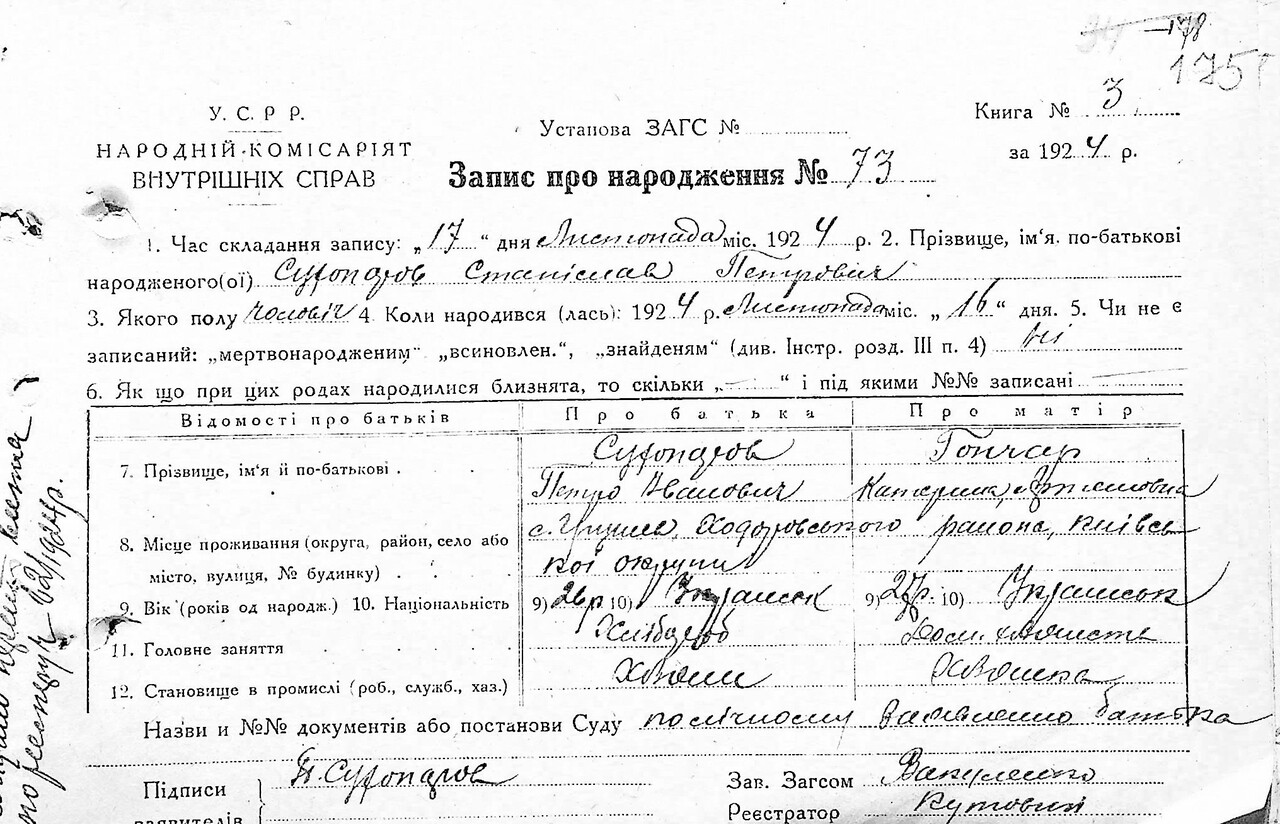 178
175
У. С. Р Р.
НАРОДНІЙ КОМІСАРІЯТ
ВНУТРІШНІХ СПРАВ
Установа ЗАГС №
Книга № 3
за 1924 р.
Запис про народження № 73
1. Час складання запису: „17“ дня Листопада міс. 1924 р. 2. Прізвище, ім'я. по-батькові
народженого(ої) Станіслав Петрович
3. Якого полу чоловіч 4. Коли народився (лась): 1924 р. Листопада міс. „16“ дня. 5. Чи не є
записаний: „мертвонародженим“ „всиновлен.“, „знайденям“ (див. Інстр. розд. III п. 4) ні
6. Як що при цих родах народилися близнята, то скільки „ “ і під якими №№ записані
Відомості про батьків Про батька Про матір
7. Прізвище, ім'я й по-батькові . . Гончар
Петро Іванович Катерина
8. Місце проживання (округа, район, село або с. Ходоровського района, Київсь-
місто, вулиця, № будинку) . . кої округи
9. Вік (років од народж.) 10. Національність 9) 26 р 10) Українськ 9) 27 р. 10) Українськ
11. Головне заняття . . . Хлібороб Дом.
12. Становище в промислі (роб., служб., хаз.) Хозяин Хозяйка
Назви и №№ документів або постанови Суду по заявленню батька
Підписи
заявителів
Зав. Загсом Вакуленко
Реєстратор Кутовий